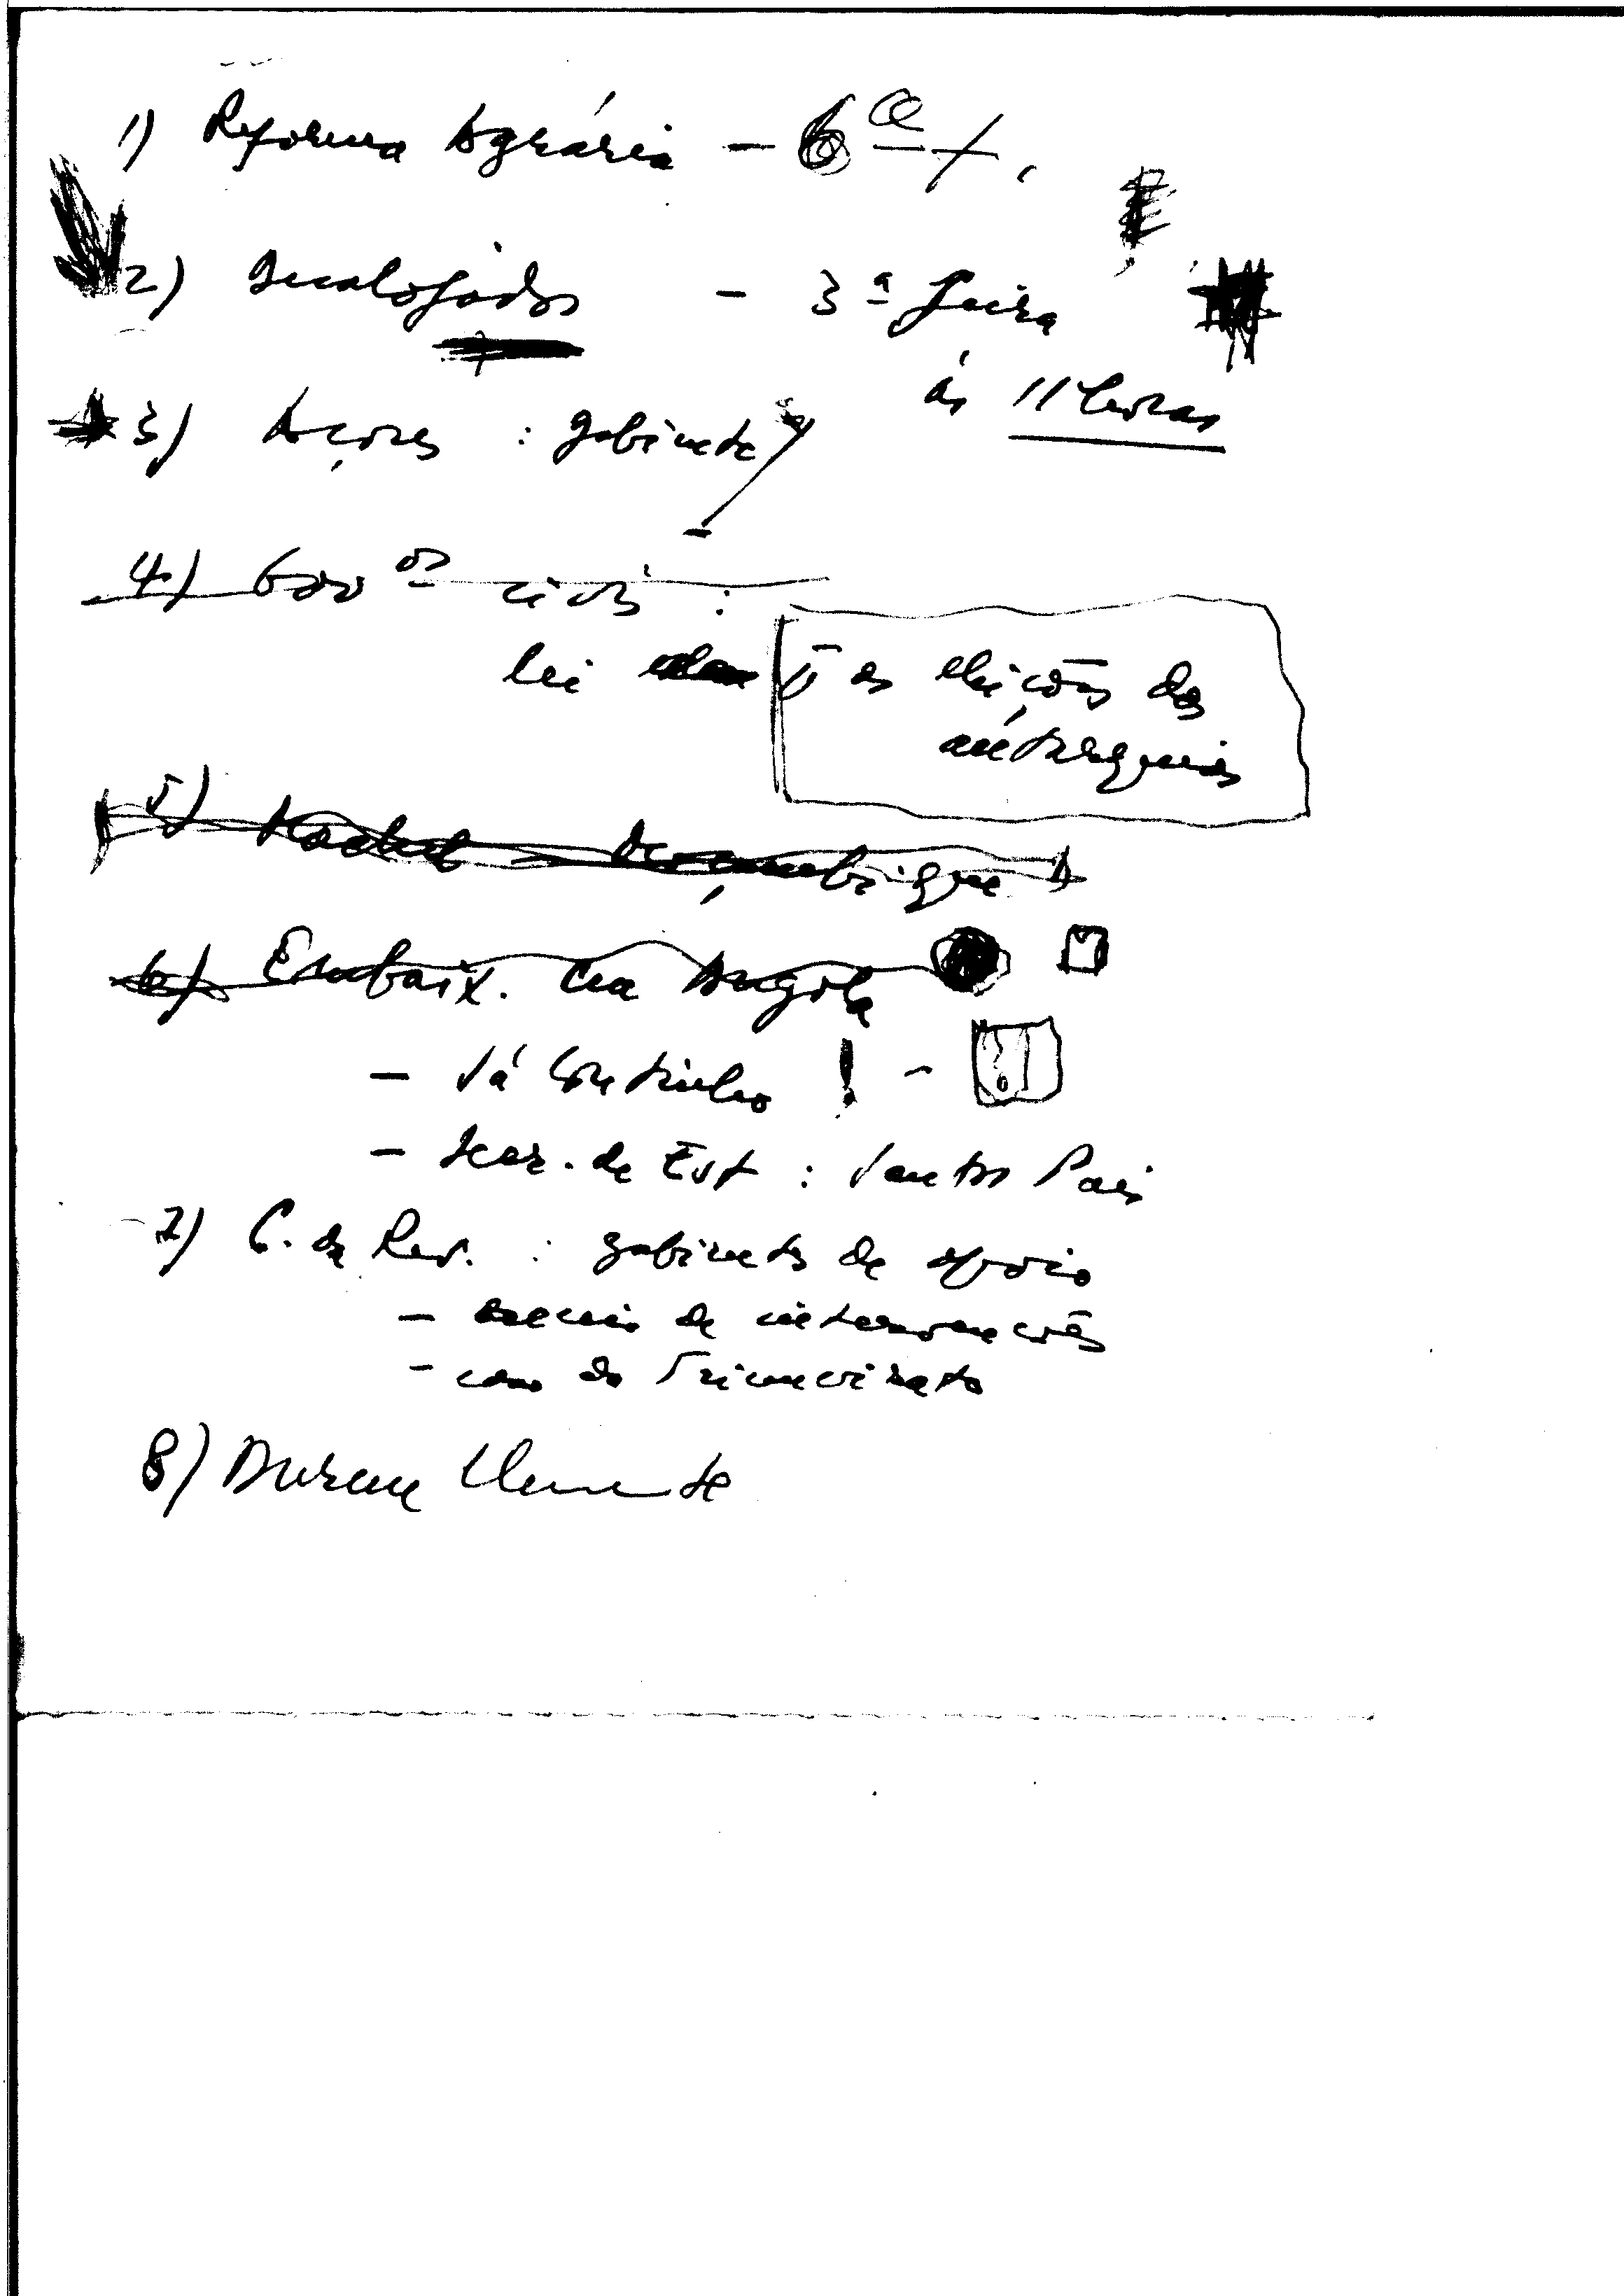 1) Reforma Agrária — 6ª f.
2) Desalojados — 3ª feira
às 11 horas
3) Açores : gabinete
4) Gov os civis :
lei as eleições das
autarquias
5) Moçambique
6) Embaix. em Angola
— Sá Coutinho !
— Secr. de Est : Santos Pais
7) C. da Rev. : gabinetes de apoio
— de intervenções
— caso do Triunvirato
8) Duran Clemente